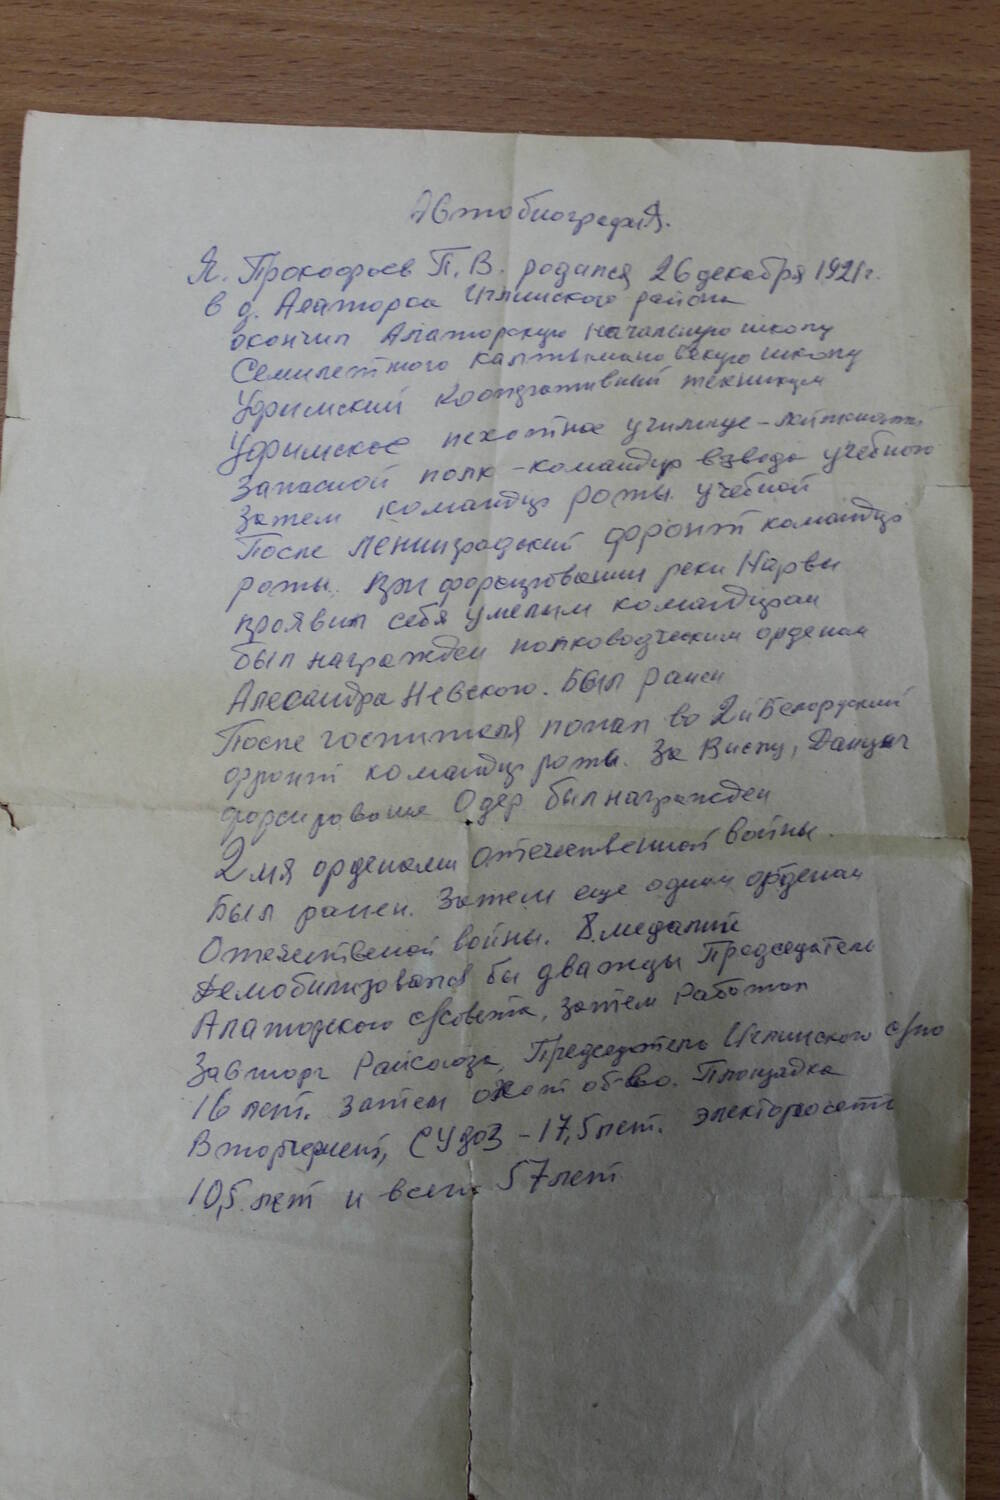 Автобиография.
Я. Прокофьев П.В. родался 26 декабря 1921г.
в д. Алаторка Иглинского района
окончил Алаторскую начальную школу
Семилетнего Калтымановскую школу
Уфимский Кооперативный техникум
Уфимское пехотное училище – лейтенант
Запасной полк – командир взвода учебного
Затем командир роты учебной
После Ленинградский фронт командир
роты. При форсировании реки Нарвы
проявил себя умелым командиром
был награжден полководческим орденом
Алесандра Невского. Был ранен
После госпиталя попал во 2й Белоруский
фронт командир роты. За Вислу, Данциг
форсирование Одер был награжден
2мя орденами Отечественной войны.
Был ранен. Затем еще одним орденом
Отечественой войны. 8 медалий
Демобилизовался бы дважды Председатель
Алаторского с/совета, затем работал
Завторг Райсоюза, Председатель Иглинского с/по
16 лет. Затем охот об-во. Площадка
Вторчермет, СУДОЗ – 17,5 лет. электоросеть
10,5 лет и всего 57 лет